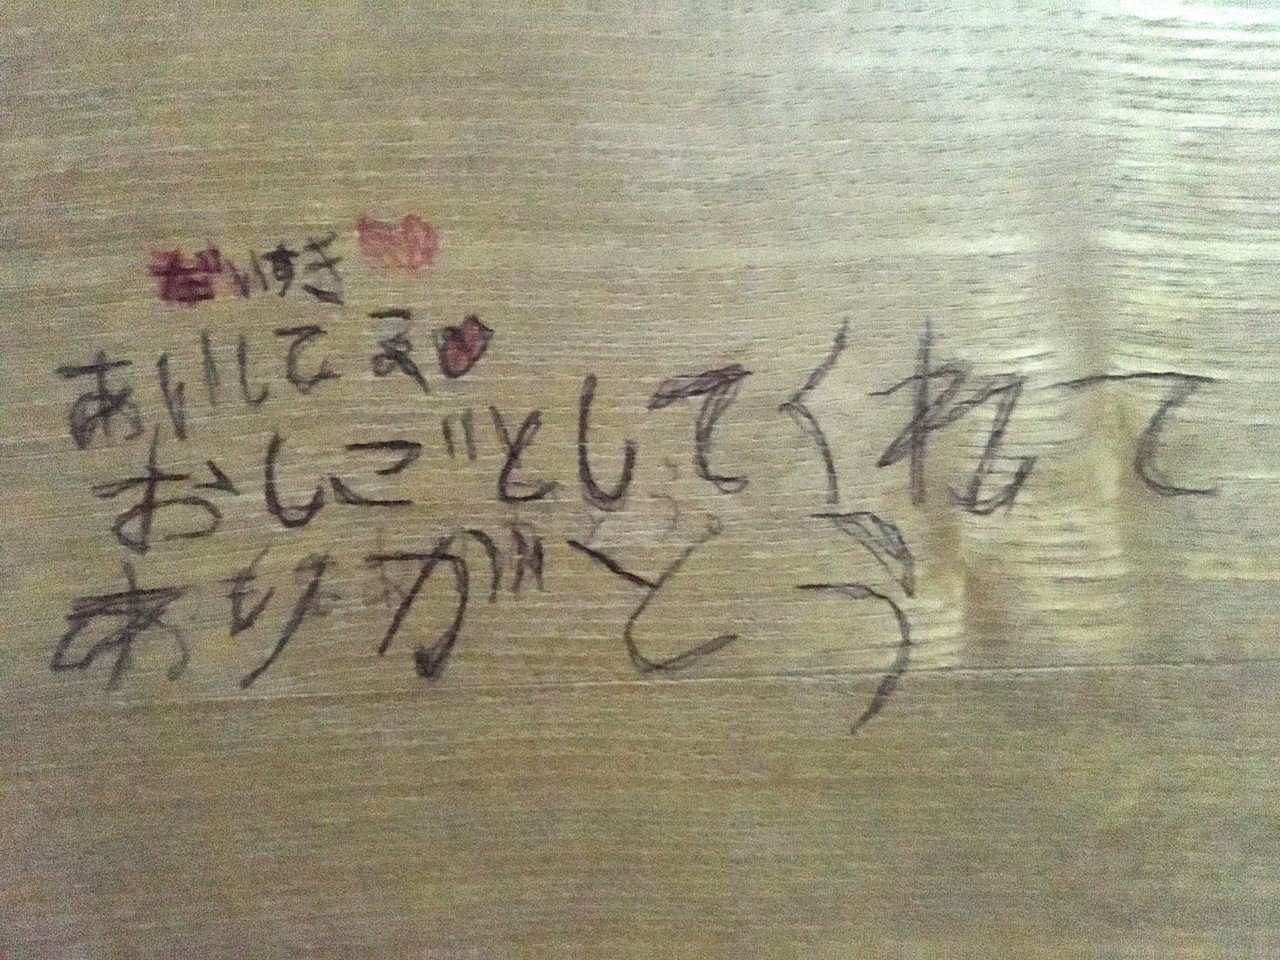 だいすき
あいしてる♥
おしごとしてくねて
ありがとう